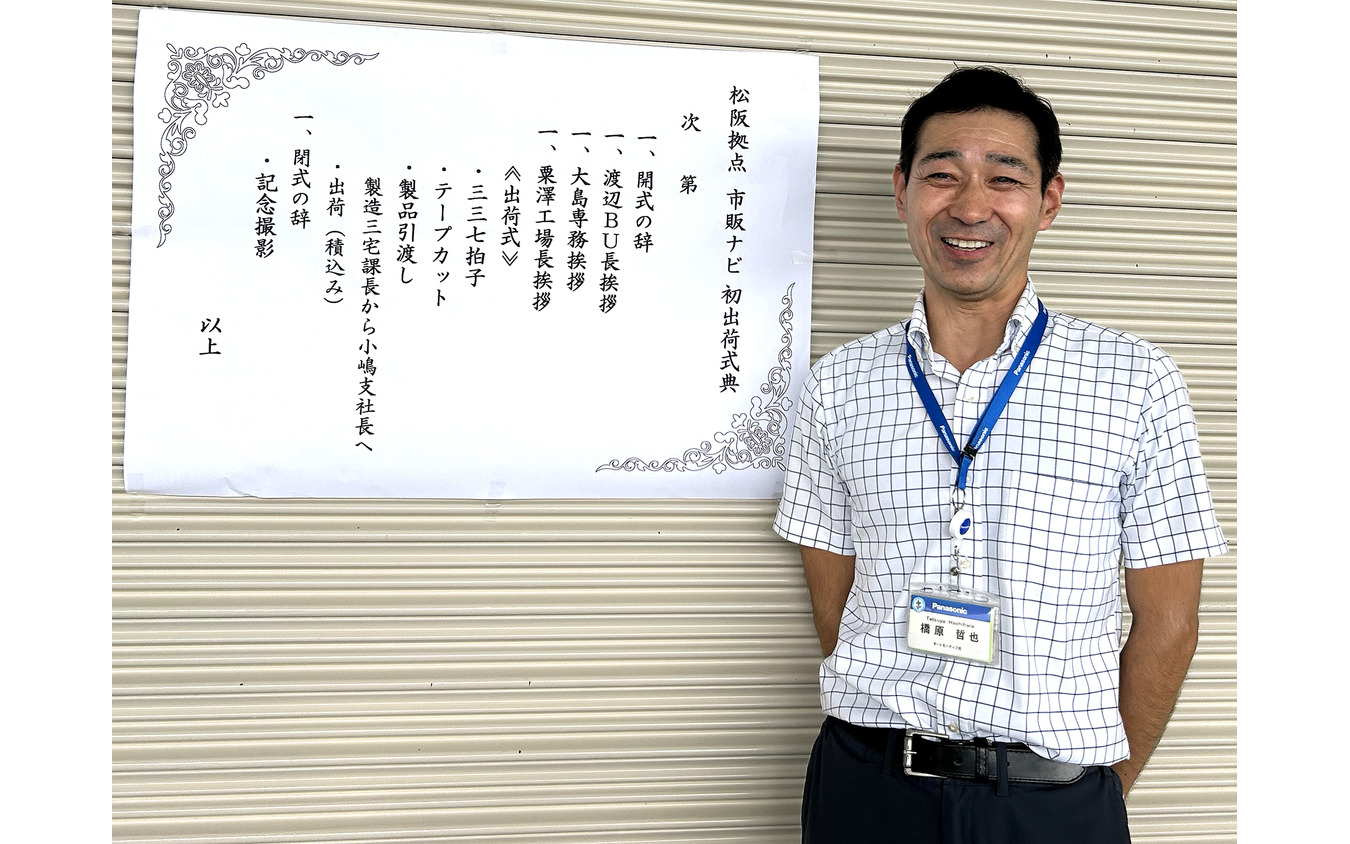 松阪拠点 市販ナビ 初出荷式典
次 第
一、開式の辞
一、渡辺BU長挨拶
一、大島専務挨拶
一、粟澤工場長挨拶
《出荷式》
・三三七拍子
・テープカット
・製品引渡し
製造三宅課長から小嶋支社長へ
・出荷（積込み）
一、閉式の辞
・記念撮影
以上
Panasonic
Panasonic
Panasonic
Panasonic
Panasonic
Tetsuya Hashihara
橋原 哲也
オートモーティブ社